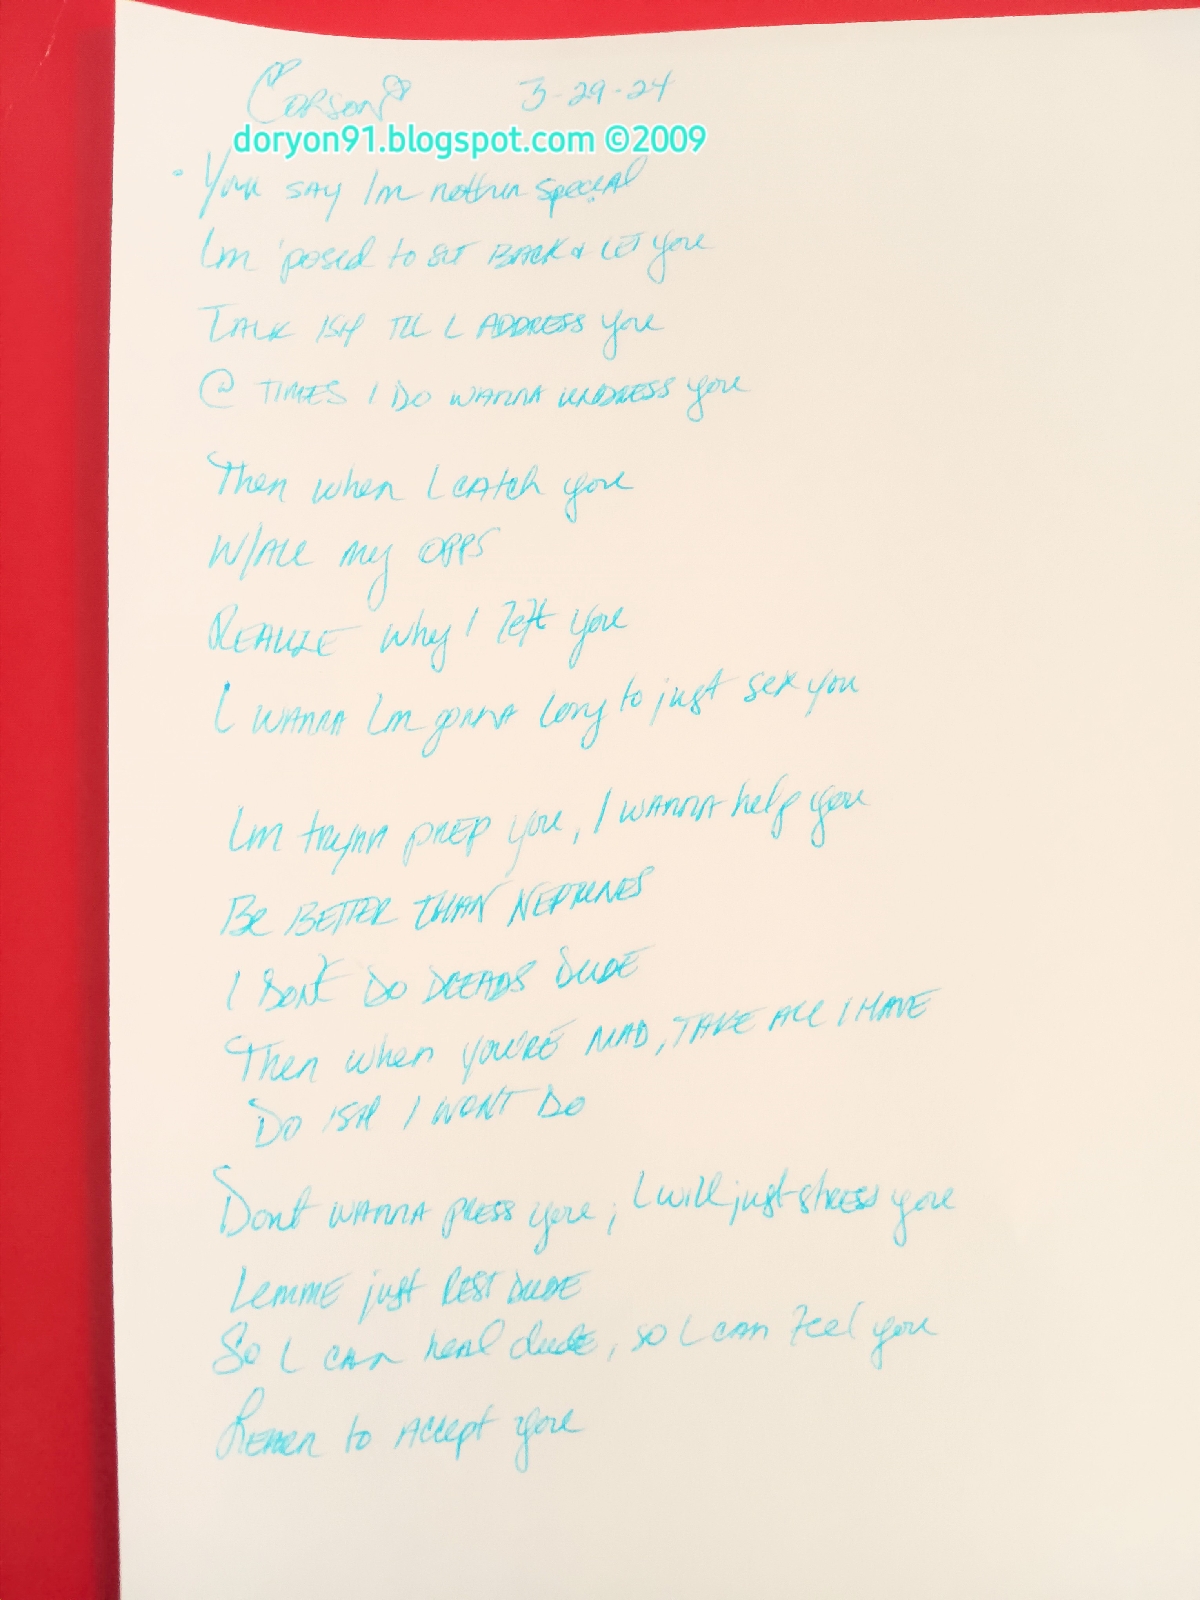 Corson 3-29-24
doryon91.blogspot.com ©2009
You say Im nothin special
Im 'posed to sit BACK & LET you
TALK ISH TIL I ADDRESS you
@ TIMES I DO WANNA UNDRESS you
Then when I catch you
W/ALL my OPPS
REALIZE why I left you
I WANNA Im gonna long to just sex you
Im tryna PREP you, I WANNA help you
Be BETTER THAN NEPTUNES
I DON'T DO DREADS DUDE
Then when YOU'RE MAD, TAKE ALL I HAVE
DO ISH I WONT DO
Dont WANNA PRESS you; I will just stress you
Lemme just REST DUDE
So I can heal dude, so I can feel you
to ACCEPT you